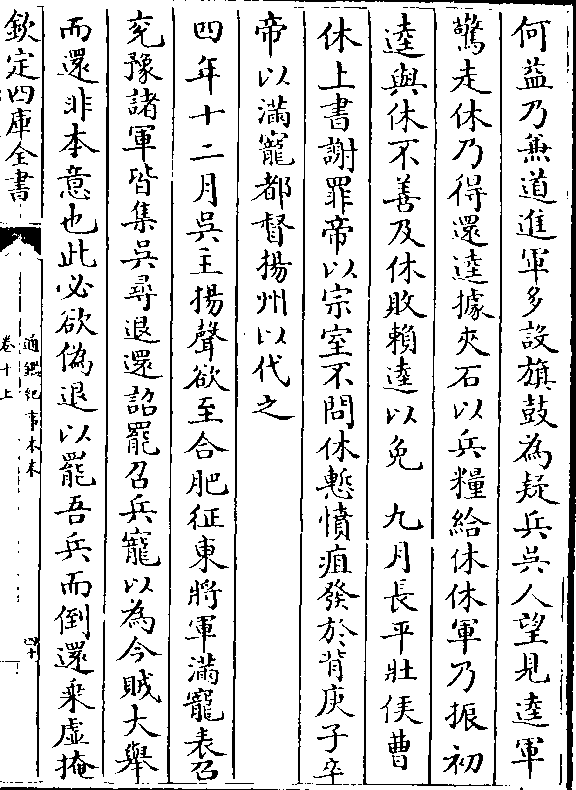 何益乃兼道進軍多設旗鼓為疑兵吳人望見逵軍
驚走休乃得還逵據夾石以兵糧給休休軍乃振初
逵與休不善及休敗賴逵以免　九月長平壯侯曹
休上書謝罪帝以宗室不問休慙憤疽發於背庚子卒
帝以滿寵都督揚州以代之
四年十二月吳主揚聲欲至合肥征東將軍滿寵表召
兖豫諸軍皆集吳尋退還詔罷召兵寵以為今賊大舉
而還非本意也此必欲偽退以罷吾兵而倒還乘虛掩
欽定四庫全書
通鑑紀事本末
卷十上
四十